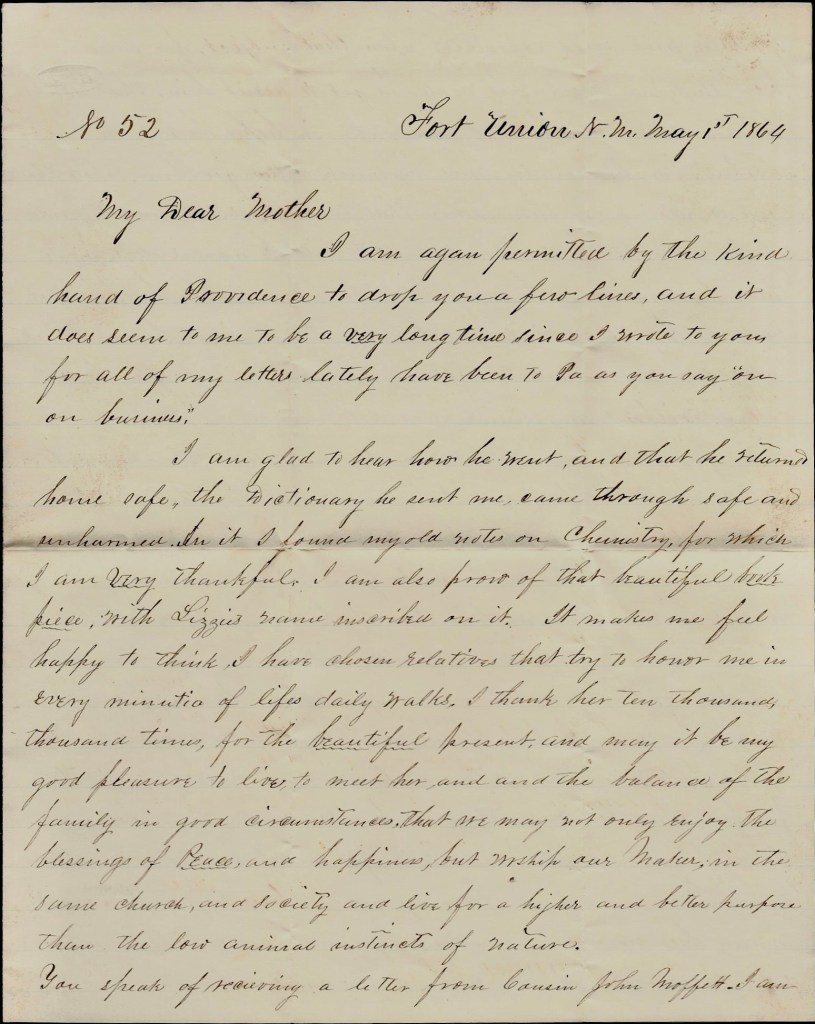 No 52
Fort Union N. M. May 1st 1864
My Dear Mother
I am agan permitted by the kind
hand of Providence to drop you a few lines, and it
does seem to me to be a very long time since I wrote to you,
for all of my letters lately have been to Pa as you say "on
on business".
I am glad to hear how he went, and that he returned
home safe, the Dictionary he sent me, came through safe and
unharmed. In it I found my old notes on Chemistry, for which
I am very thankful. I am also prow of that beautiful book
piece, with Lizzies name inscribed on it. It makes me feel
happy to think I have chosen relatives that try to honor me in
every minutia of lifes daily walks. I thank her ten thousand,
thousand times, for the beautiful present, and may it be my
good pleasure to live, to meet her, and and the balance of the
family in good circumstances, that we may not only enjoy the
blessings of Peace, and happiness, but worship our Maker, in the
same church, and society and live for a higher and better purpose
than the low animal instincts of nature.
You speak of recieving a letter from Cousin John Moffett. I am